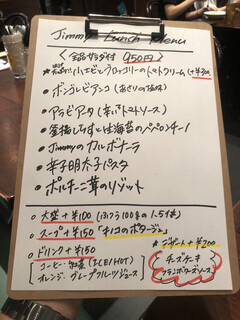 Jimmy Lunch Menu
〈全品サラダ付 950円〉
小エビとブロッコリーのトマトクリーム (+¥300)
• ボンゴレビアンコ (あさりの塩味)
• アラビアータ (辛いトマトソース)
• 釜揚しらすと生海苔のペペロンチーノ
• Jimmyのカルボナーラ
• 辛子明太子パスタ
• ポルチーニ茸のリゾット
○ 大盛 +¥100 (ふつう100gの1.5倍)
○ スープ +¥150 「キノコのポタージュ」
○ ドリンク +¥150
コーヒー・紅茶 (ICE/HOT)
オレンジ・グレープフルーツジュース
☆ デザート +¥200
チーズケーキ